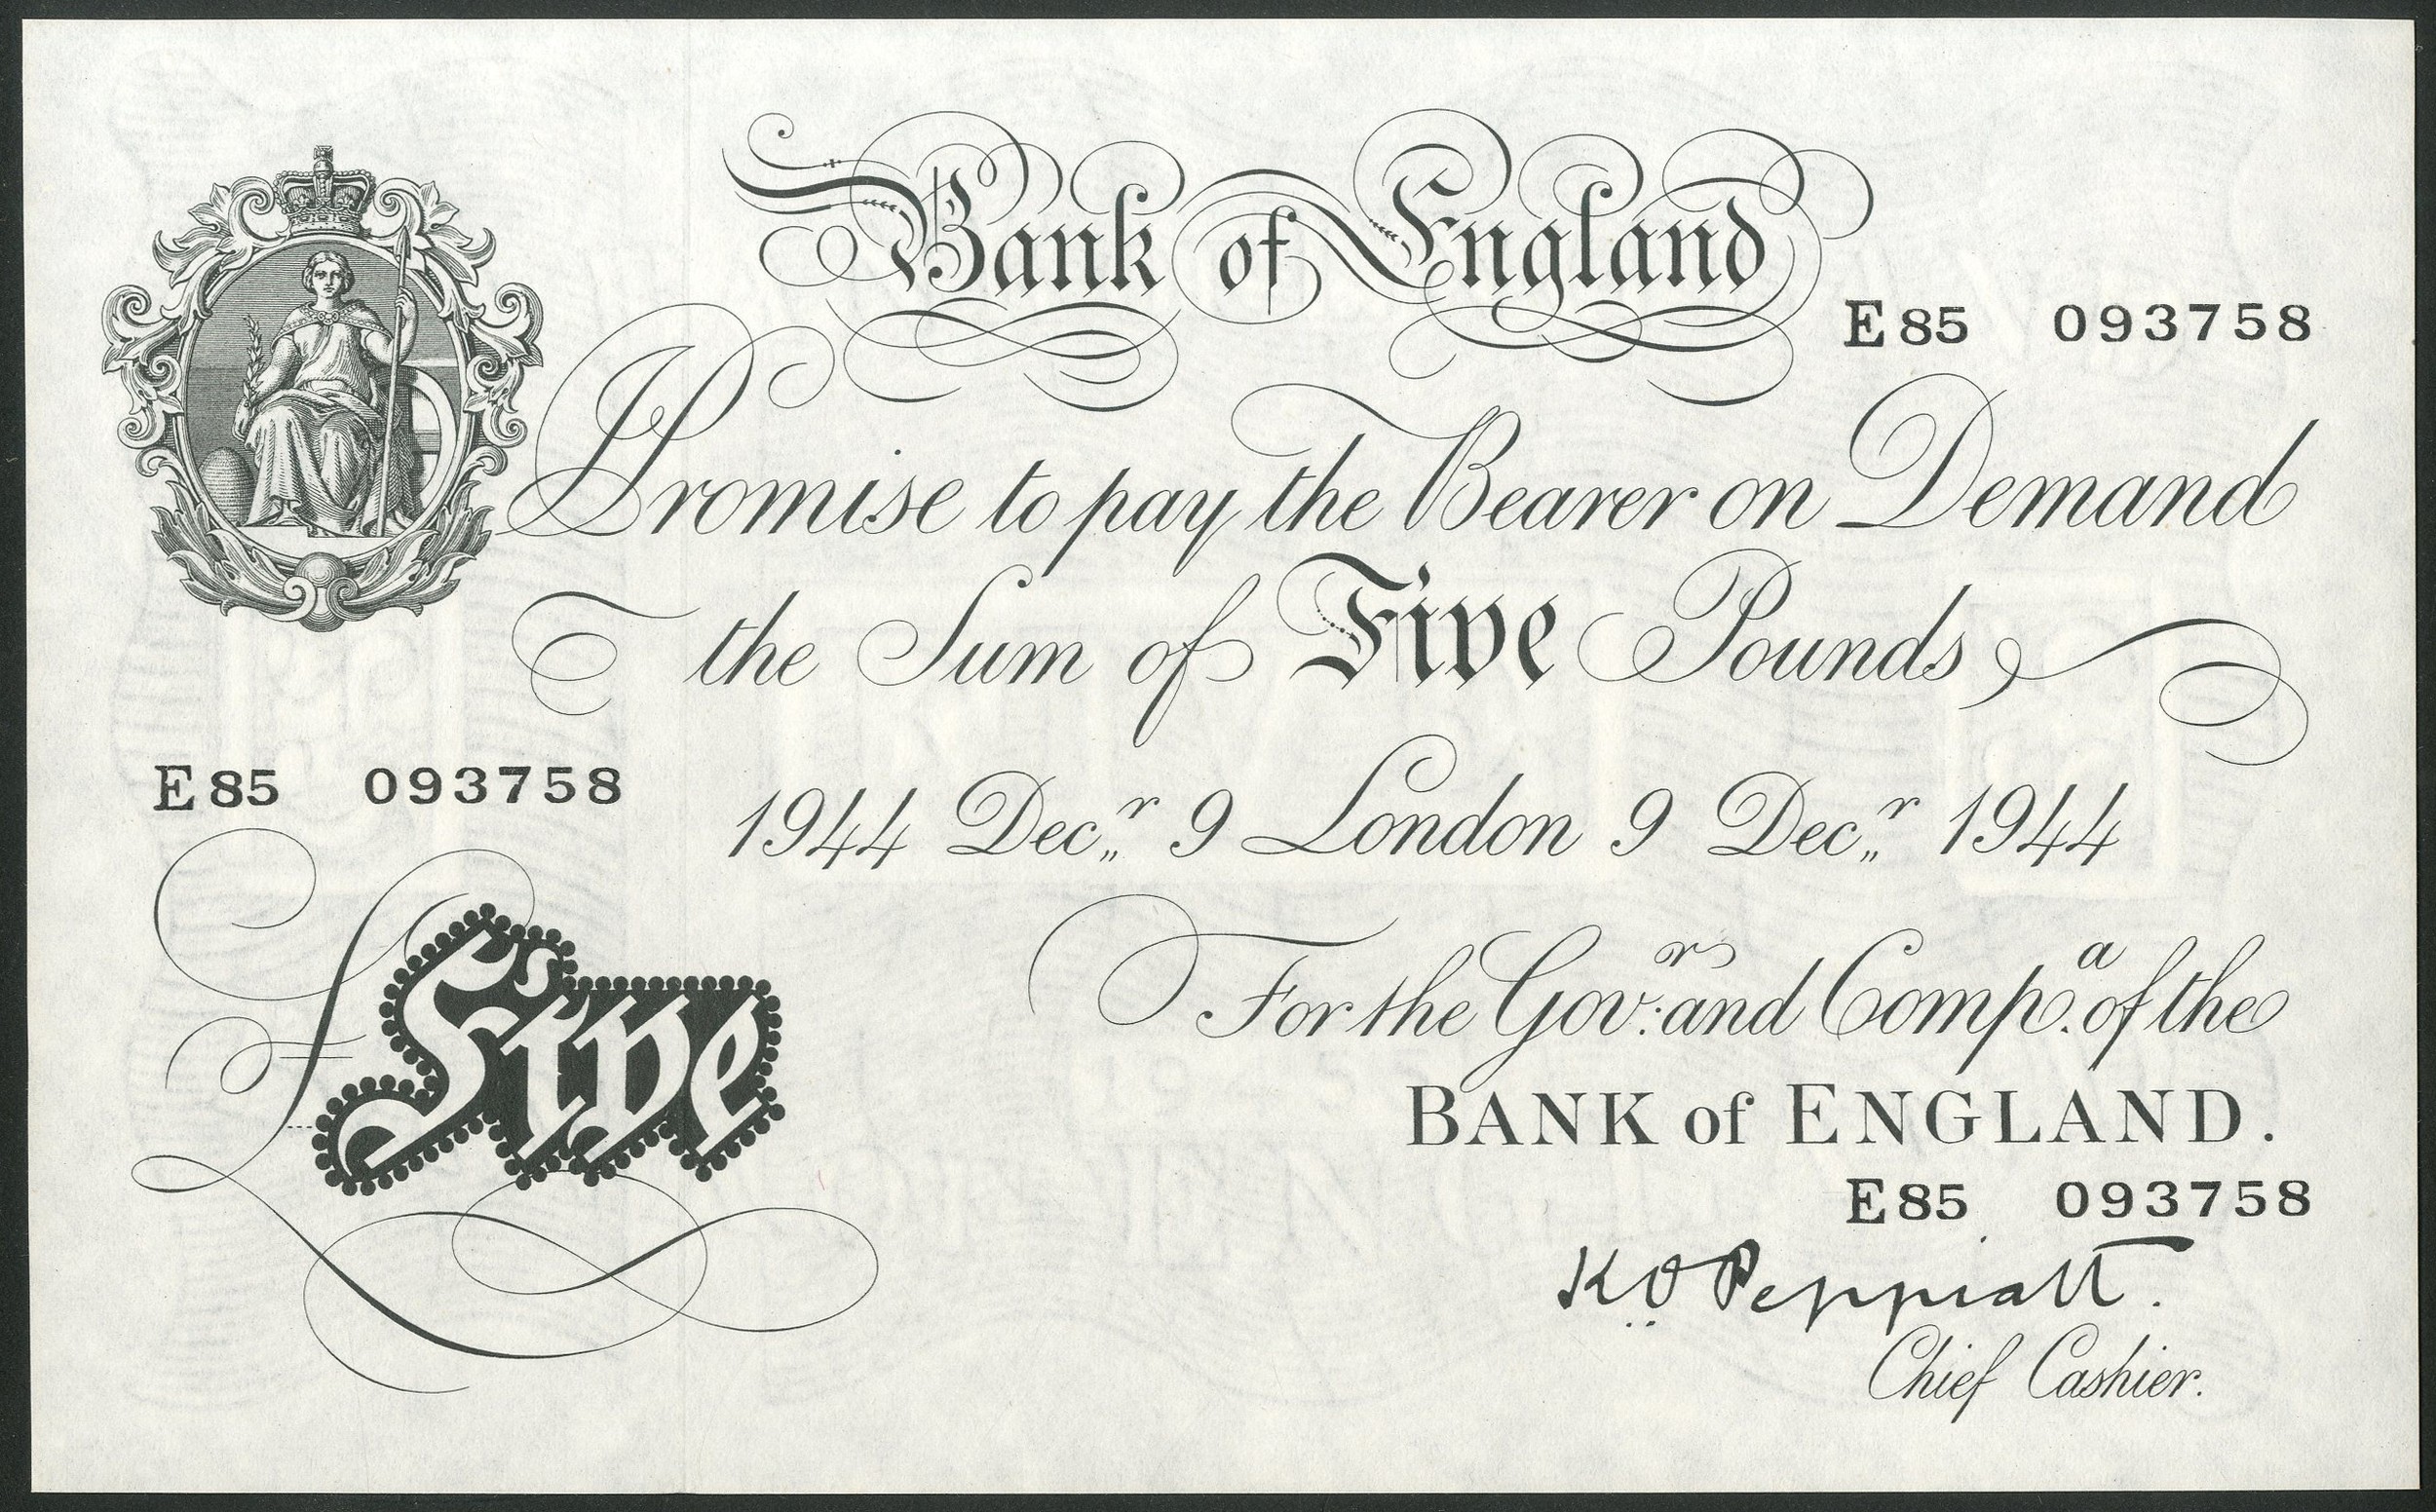 Bank of England
E 85 093758
I Promise to pay the Bearer on Demand
the Sum of Five Pounds
E 85 093758
1944 Dec.r 9 London 9 Dec.r 1944
£ Five
For the Gov.r and Comp.a of the
BANK of ENGLAND.
E 85 093758
K O Peppiatt.
Chief Cashier.